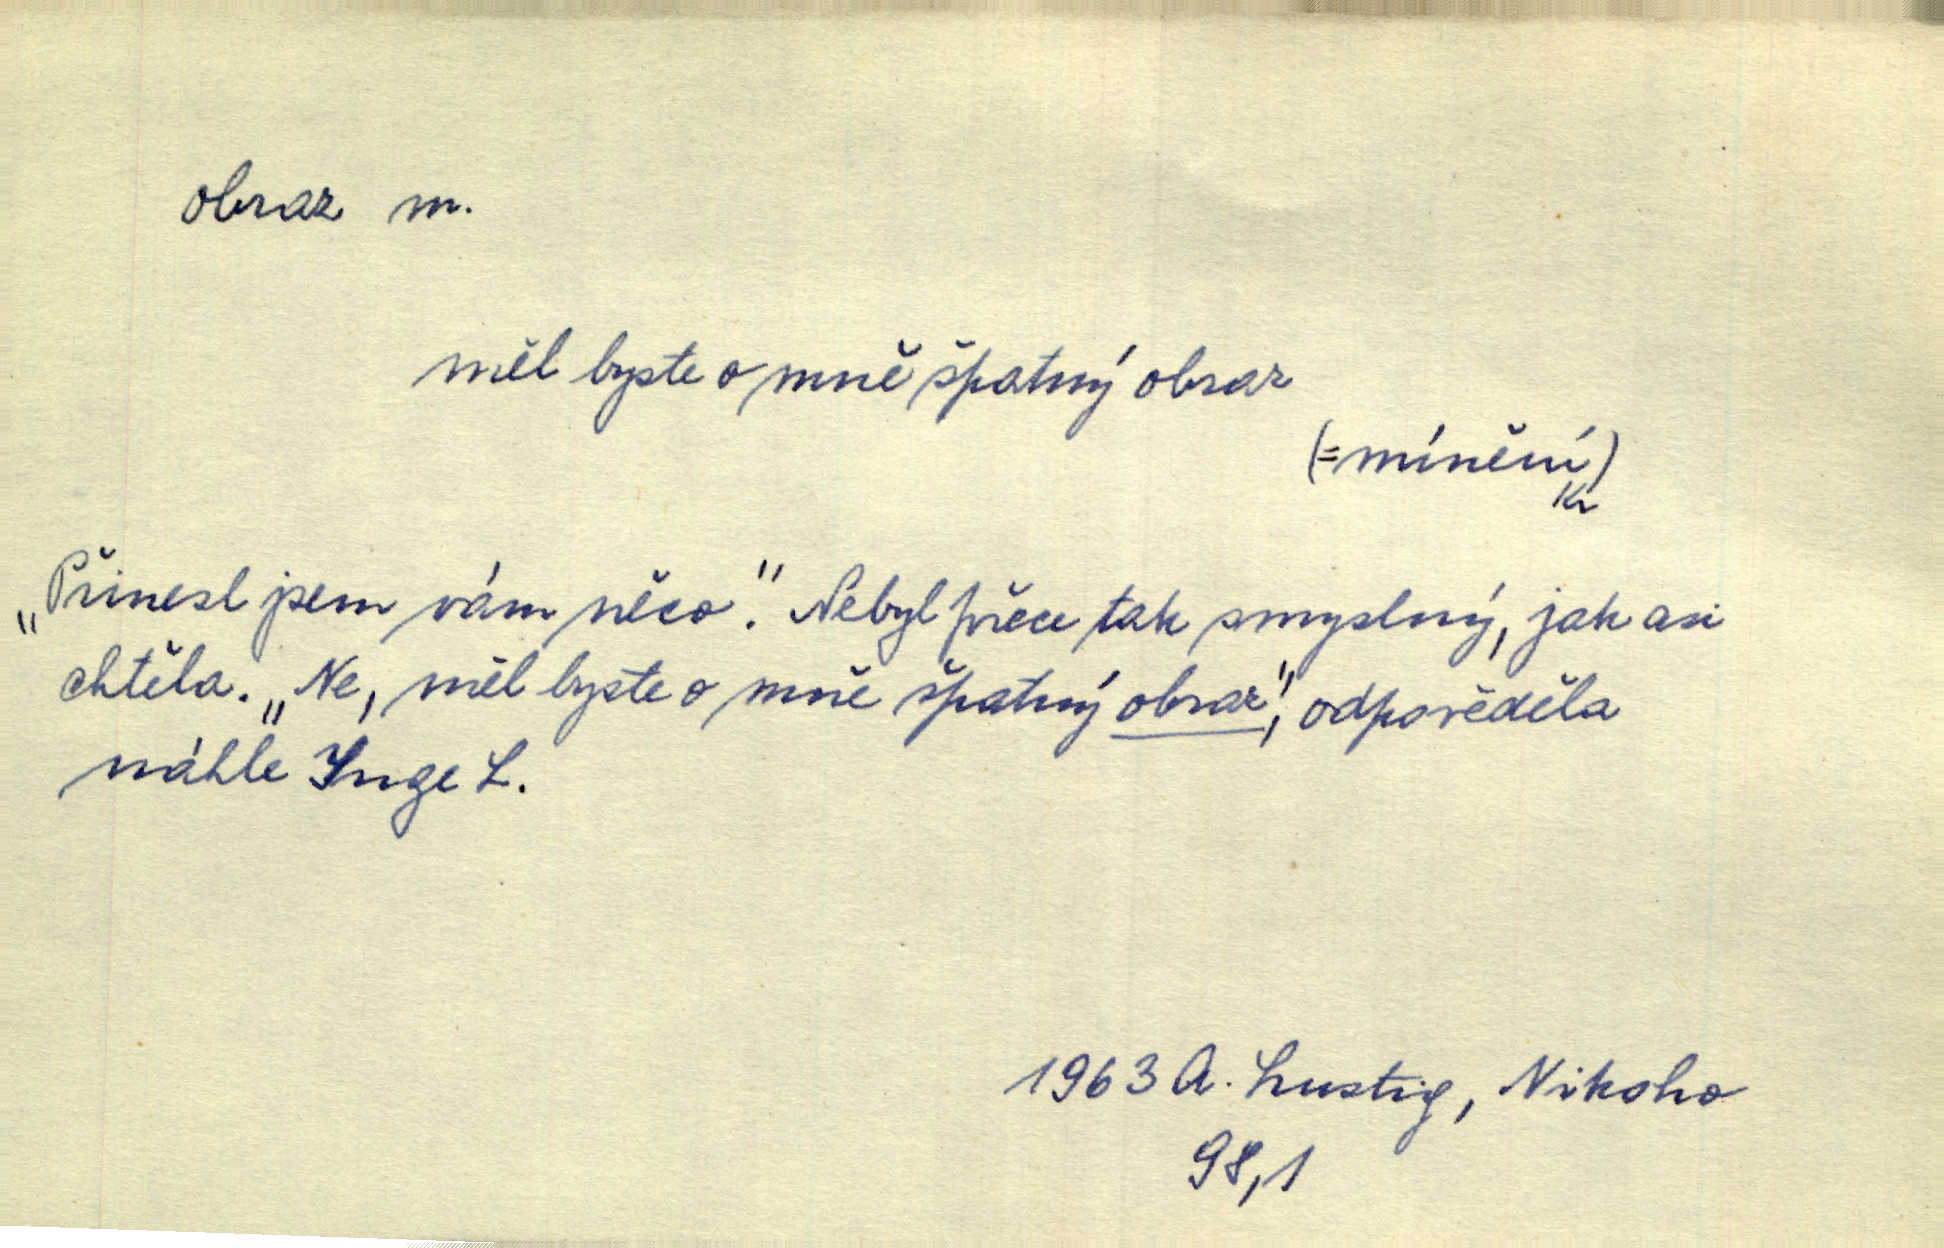 obraz m.
měl byste o mně špatný obraz
(=mínění)
Kr
„Přinesl jsem vám něco." Nebyl přece tak smyslný, jak asi
chtěla. „Ne, měl byste o mně špatný obraz", odpověděla
náhle Inge L.
1963 A. Lustig, Nikoho
98,1